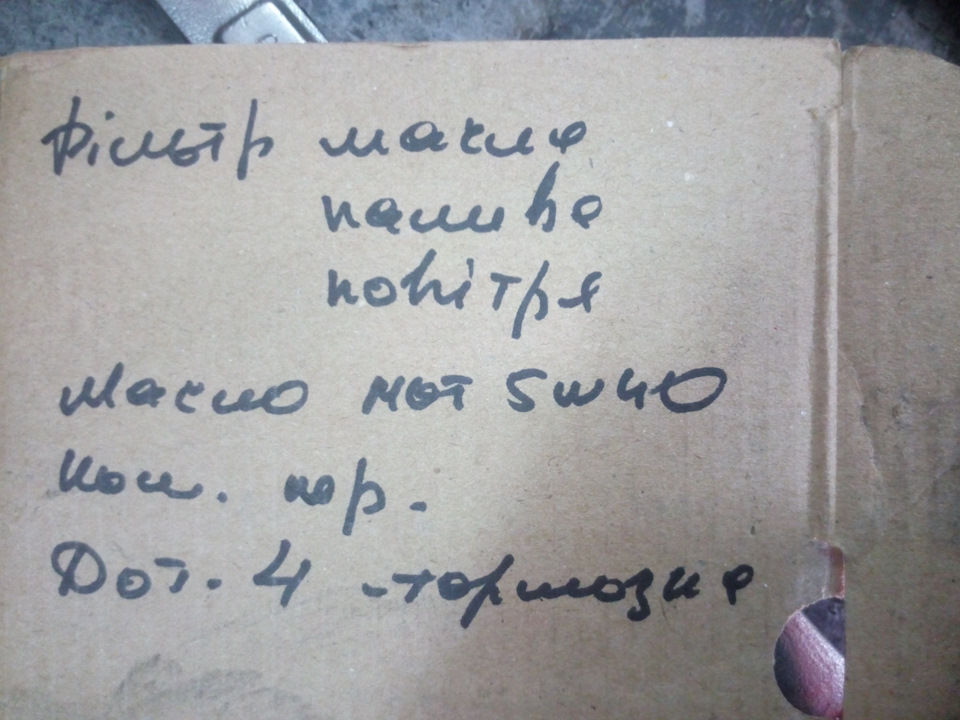 Фільтр масла
палива
повітря
Масло мот 5W40
Дот. 4 - тормозна